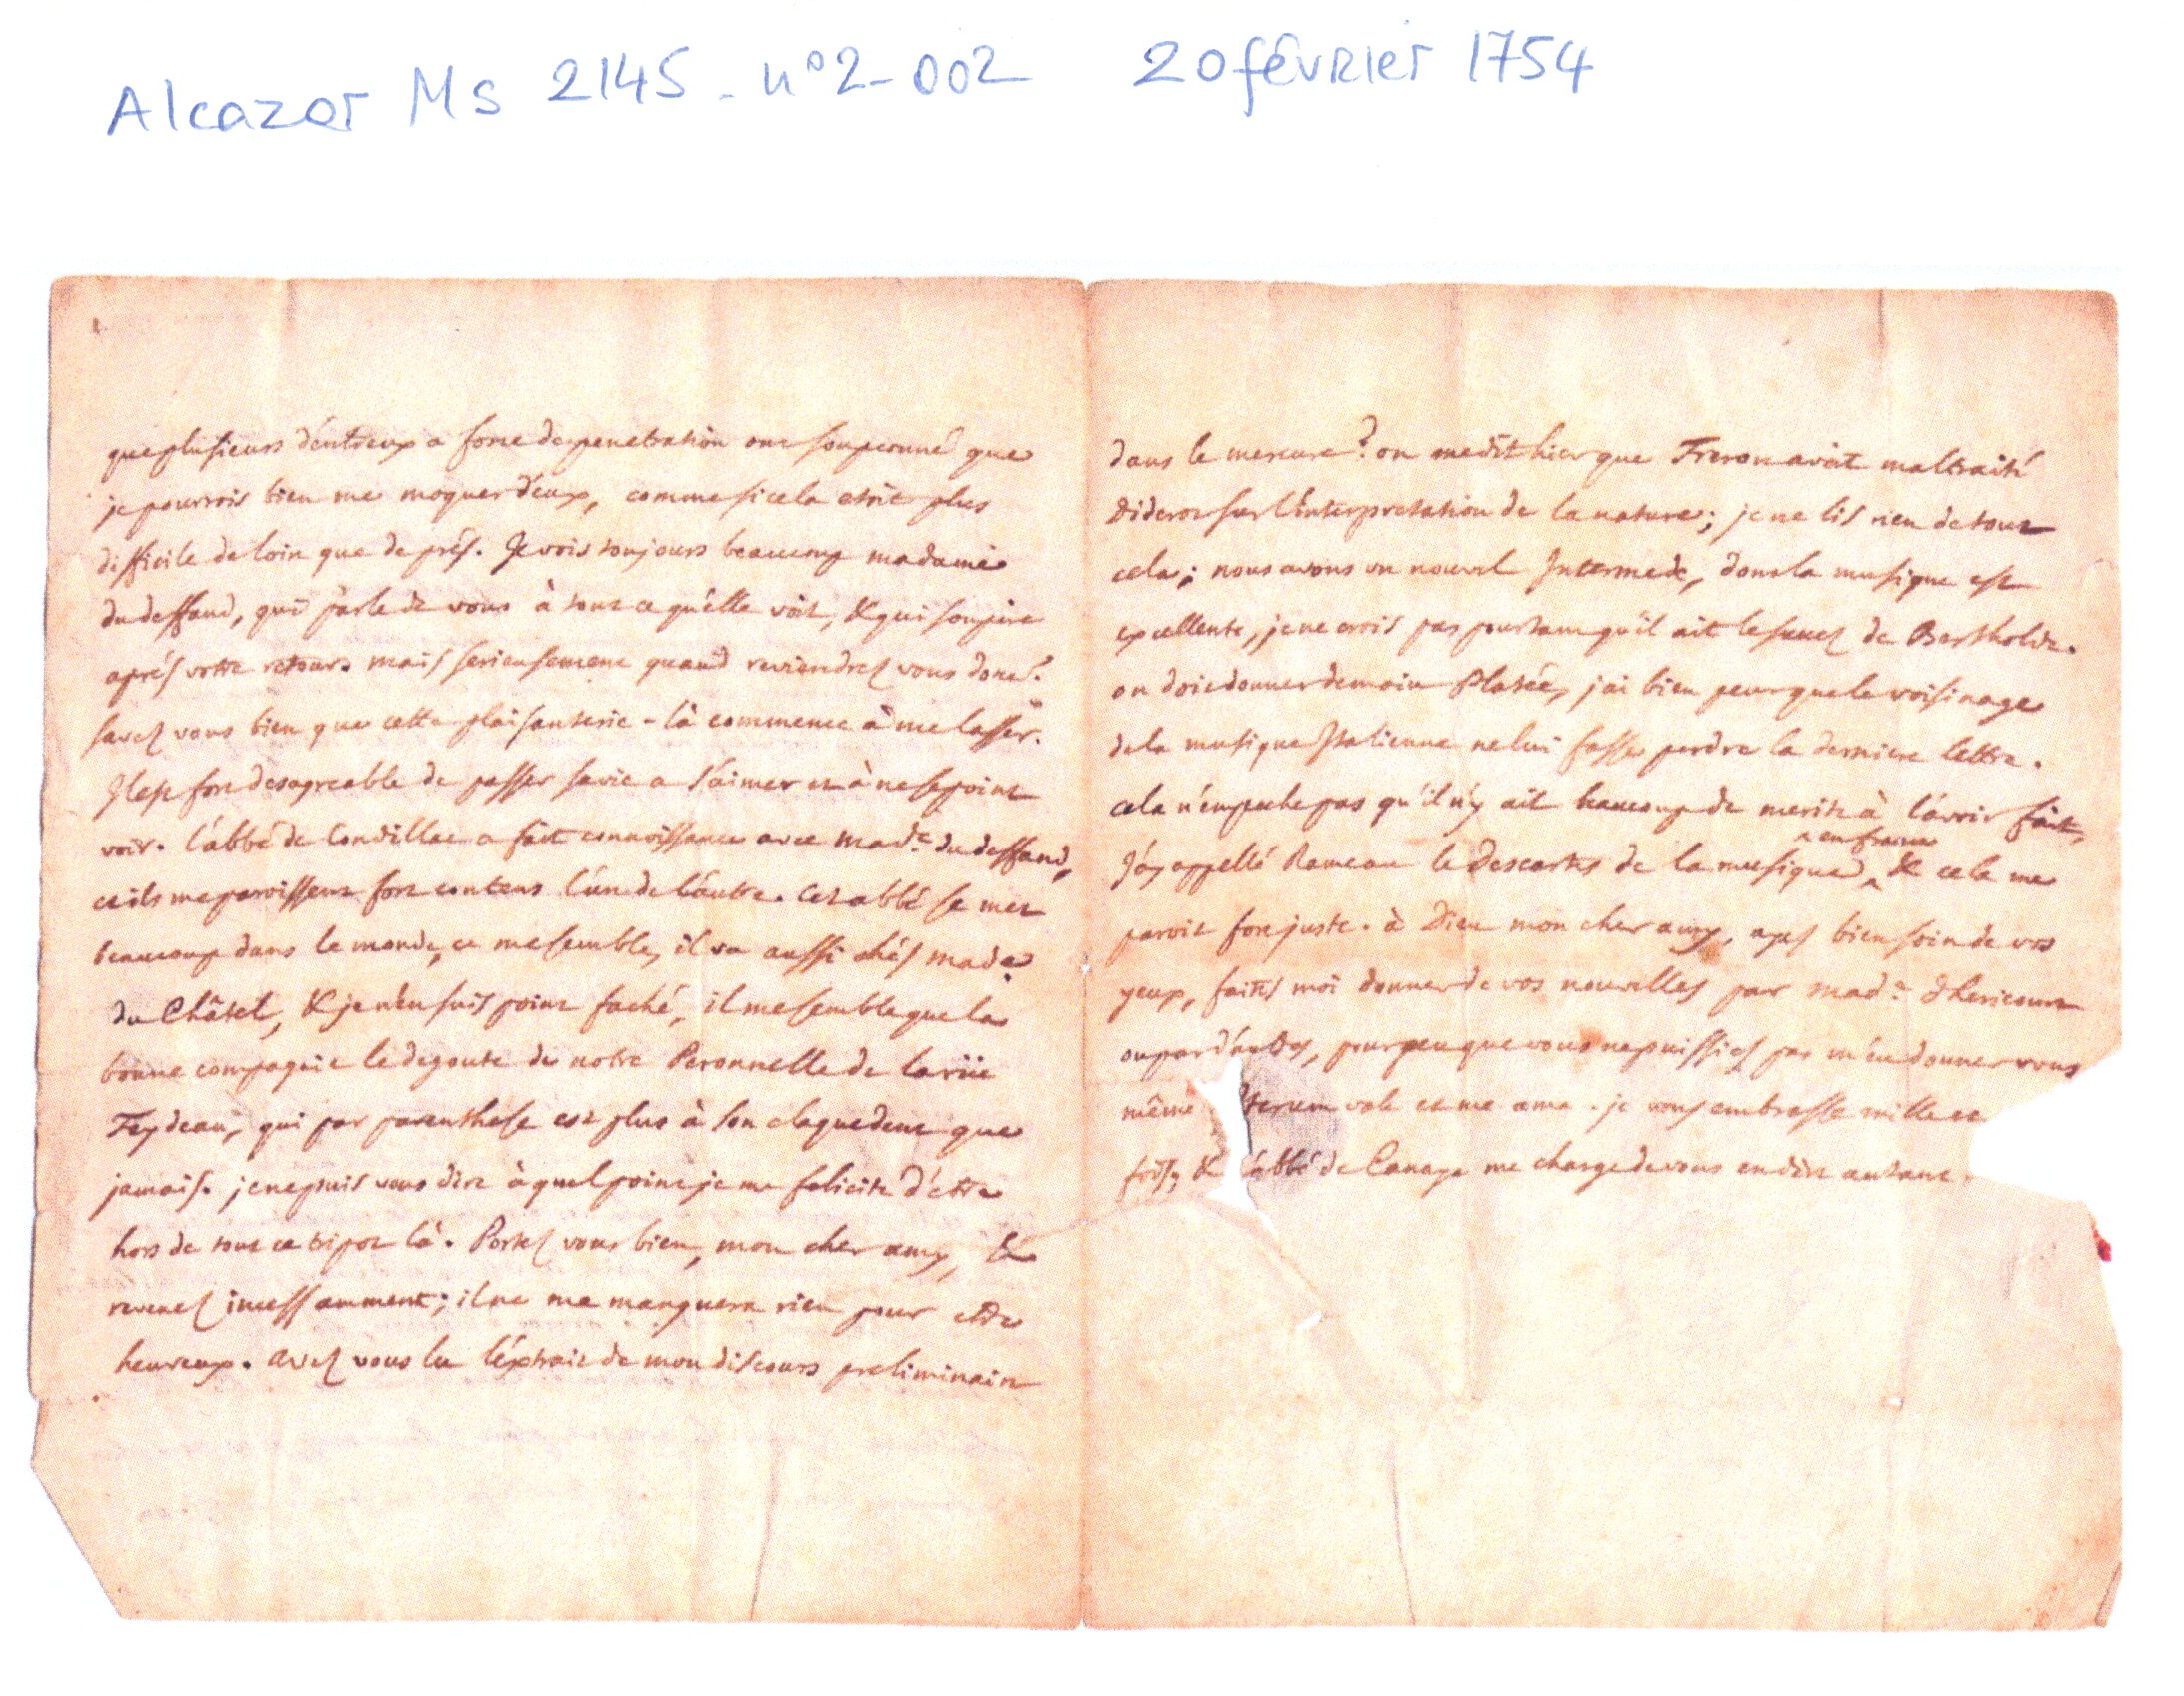 Alcazar Ms 2145 - n° 2 - 002 20 février 1754
que plusieurs d'entreux a force de penetration ont soupçonné que
je pourrois bien me moquer d'eux, comme si cela etoit plus
difficile de loin que de prés. Je vois toujours beaucoup madame
du deffand, qui parle de vous à tout ce qu'elle voit, & qui soupire
aprés votre retour. mais serieusement quand reviendrez vous donc?
savez vous bien que cette plaisanterie-là commence à me lasser.
Il est fort desagreable de passer sa vie a s'aimer et à ne se point
voir. l'abbé de Condillac a fait connoissance avec mad.e du deffand,
et ils me paroissent fort contens l'un de l'autre. Cet abbé se met
beaucoup dans le monde, ce me semble, il va aussi chés made
du Châtel, & je n'en suis point faché, il me semble que la
bonne compagnie le degoute de notre Peronnelle de la rüe
Feydeau, qui par parenthese est plus à son claquedent que
jamais. je ne puis vous dire à quel point je me felicite d'etre
hors de tout ce tripot là. Portez vous bien, mon cher amy, &
revenez incessamment; il ne me manquera rien pour etre
heureux. avez vous lu l'extrait de mon discours preliminaire
dans le mercure? on me dit hier que Freron avoit maltraité
Diderot sur l'interpretation de la nature; je ne lis rien de tout
cela; nous avons un nouvel Intermede, dont la musique est
excellente, je ne crois pas pourtant qu'il ait le succez de Bertholde.
on doit donner demain Platée, j'ai bien peur que le voisinage
de la musique Italienne ne lui fasse perdre la derniere lettre.
cela n'empeche pas qu'il n'y ait beaucoup de merite à l'avoir fait,
J'ay appellé Rameau le Descartes de la musique ^ en france & cela me
paroit fort juste. à Dieu mon cher amy, ayez bien soin de vos
yeux, faites moi donner de vos nouvelles par mad.e d'hericourt
ou par d'autres, pour peu que vous ne puissiez pas m'en donner vous
même iterum vale et me ama. je vous embrasse mille et
fois, & l'abbé de Canaye me charge de vous en dire autant.